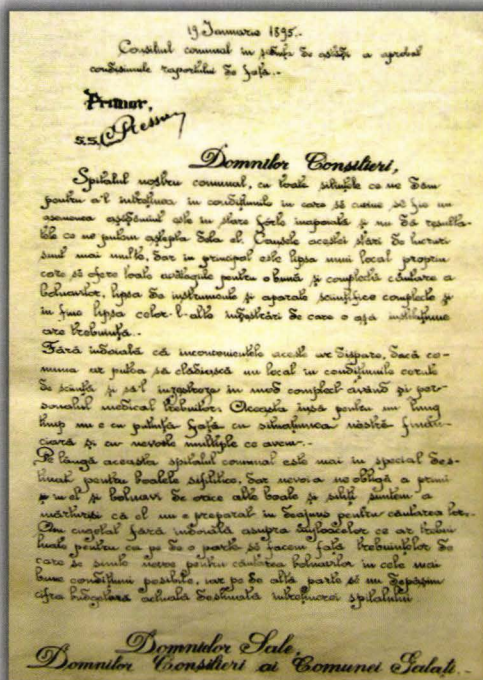 19 Ianuarie 1895.-
Consiliul comunal în ședința de astăzi a aprobat
condițiunile raportului de față.-
Primar,
s.s. C Ressu
Domnilor Consilieri,
Spitalul nostru comunal, cu toate silințele ce ne dăm
pentru a'l întreținea în condițiunile în care se cuvine să fie un
asemenea așezământ este în stare fórte înapoiată și nu dă resulta-
tele ce ne putem aștepta dela el. Causele acestei stări de lucruri
sunt mai multe, dar în principal este lipsa unui local propriu
care să ofere toate avantagiile pentru o bună și complectă căutare a
bolnavilor, lipsa de instrumente și aparate sciințifice complecte și
în fine lipsa celor-l-alte înzestrări de care o așa instituțiune
are trebuință.-
Fără indoială că inconvenientele aceste ar dispare, dacă co-
muna ar putea să clădească un local în condițiunile cerute
de sciință și să'l inzestreze în mod complect având și per-
sonalul medical trebuitor. Aceasta însă pentru un lung
timp nu e cu putință față cu situațiunea nóstră finan-
ciară și cu nevoile multiple ce avem.-
Pe lângă aceasta spitalul comunal este mai în special des-
tinat pentru boalele sifilitice, dar nevoia ne obligă a primi
și în el și bolnavi de orice alte boale și siliți suntem a
mărturisi că el nu e preparat în deajuns pentru căutarea lor.-
Am cugetat fără indoială asupra mijloacelor ce ar trebui
luate pentru ca pe de o parte să facem față trebuințelor de
care se simte nevoe pentru căutarea bolnavilor în cele mai
bune condițiuni posibile, iar pe de altă parte să nu depășim
cifra budgetară actuală destinată întreținerei spitalului
Domnielor Sale,
Domnilor Consilieri ai Comunei Galați.-